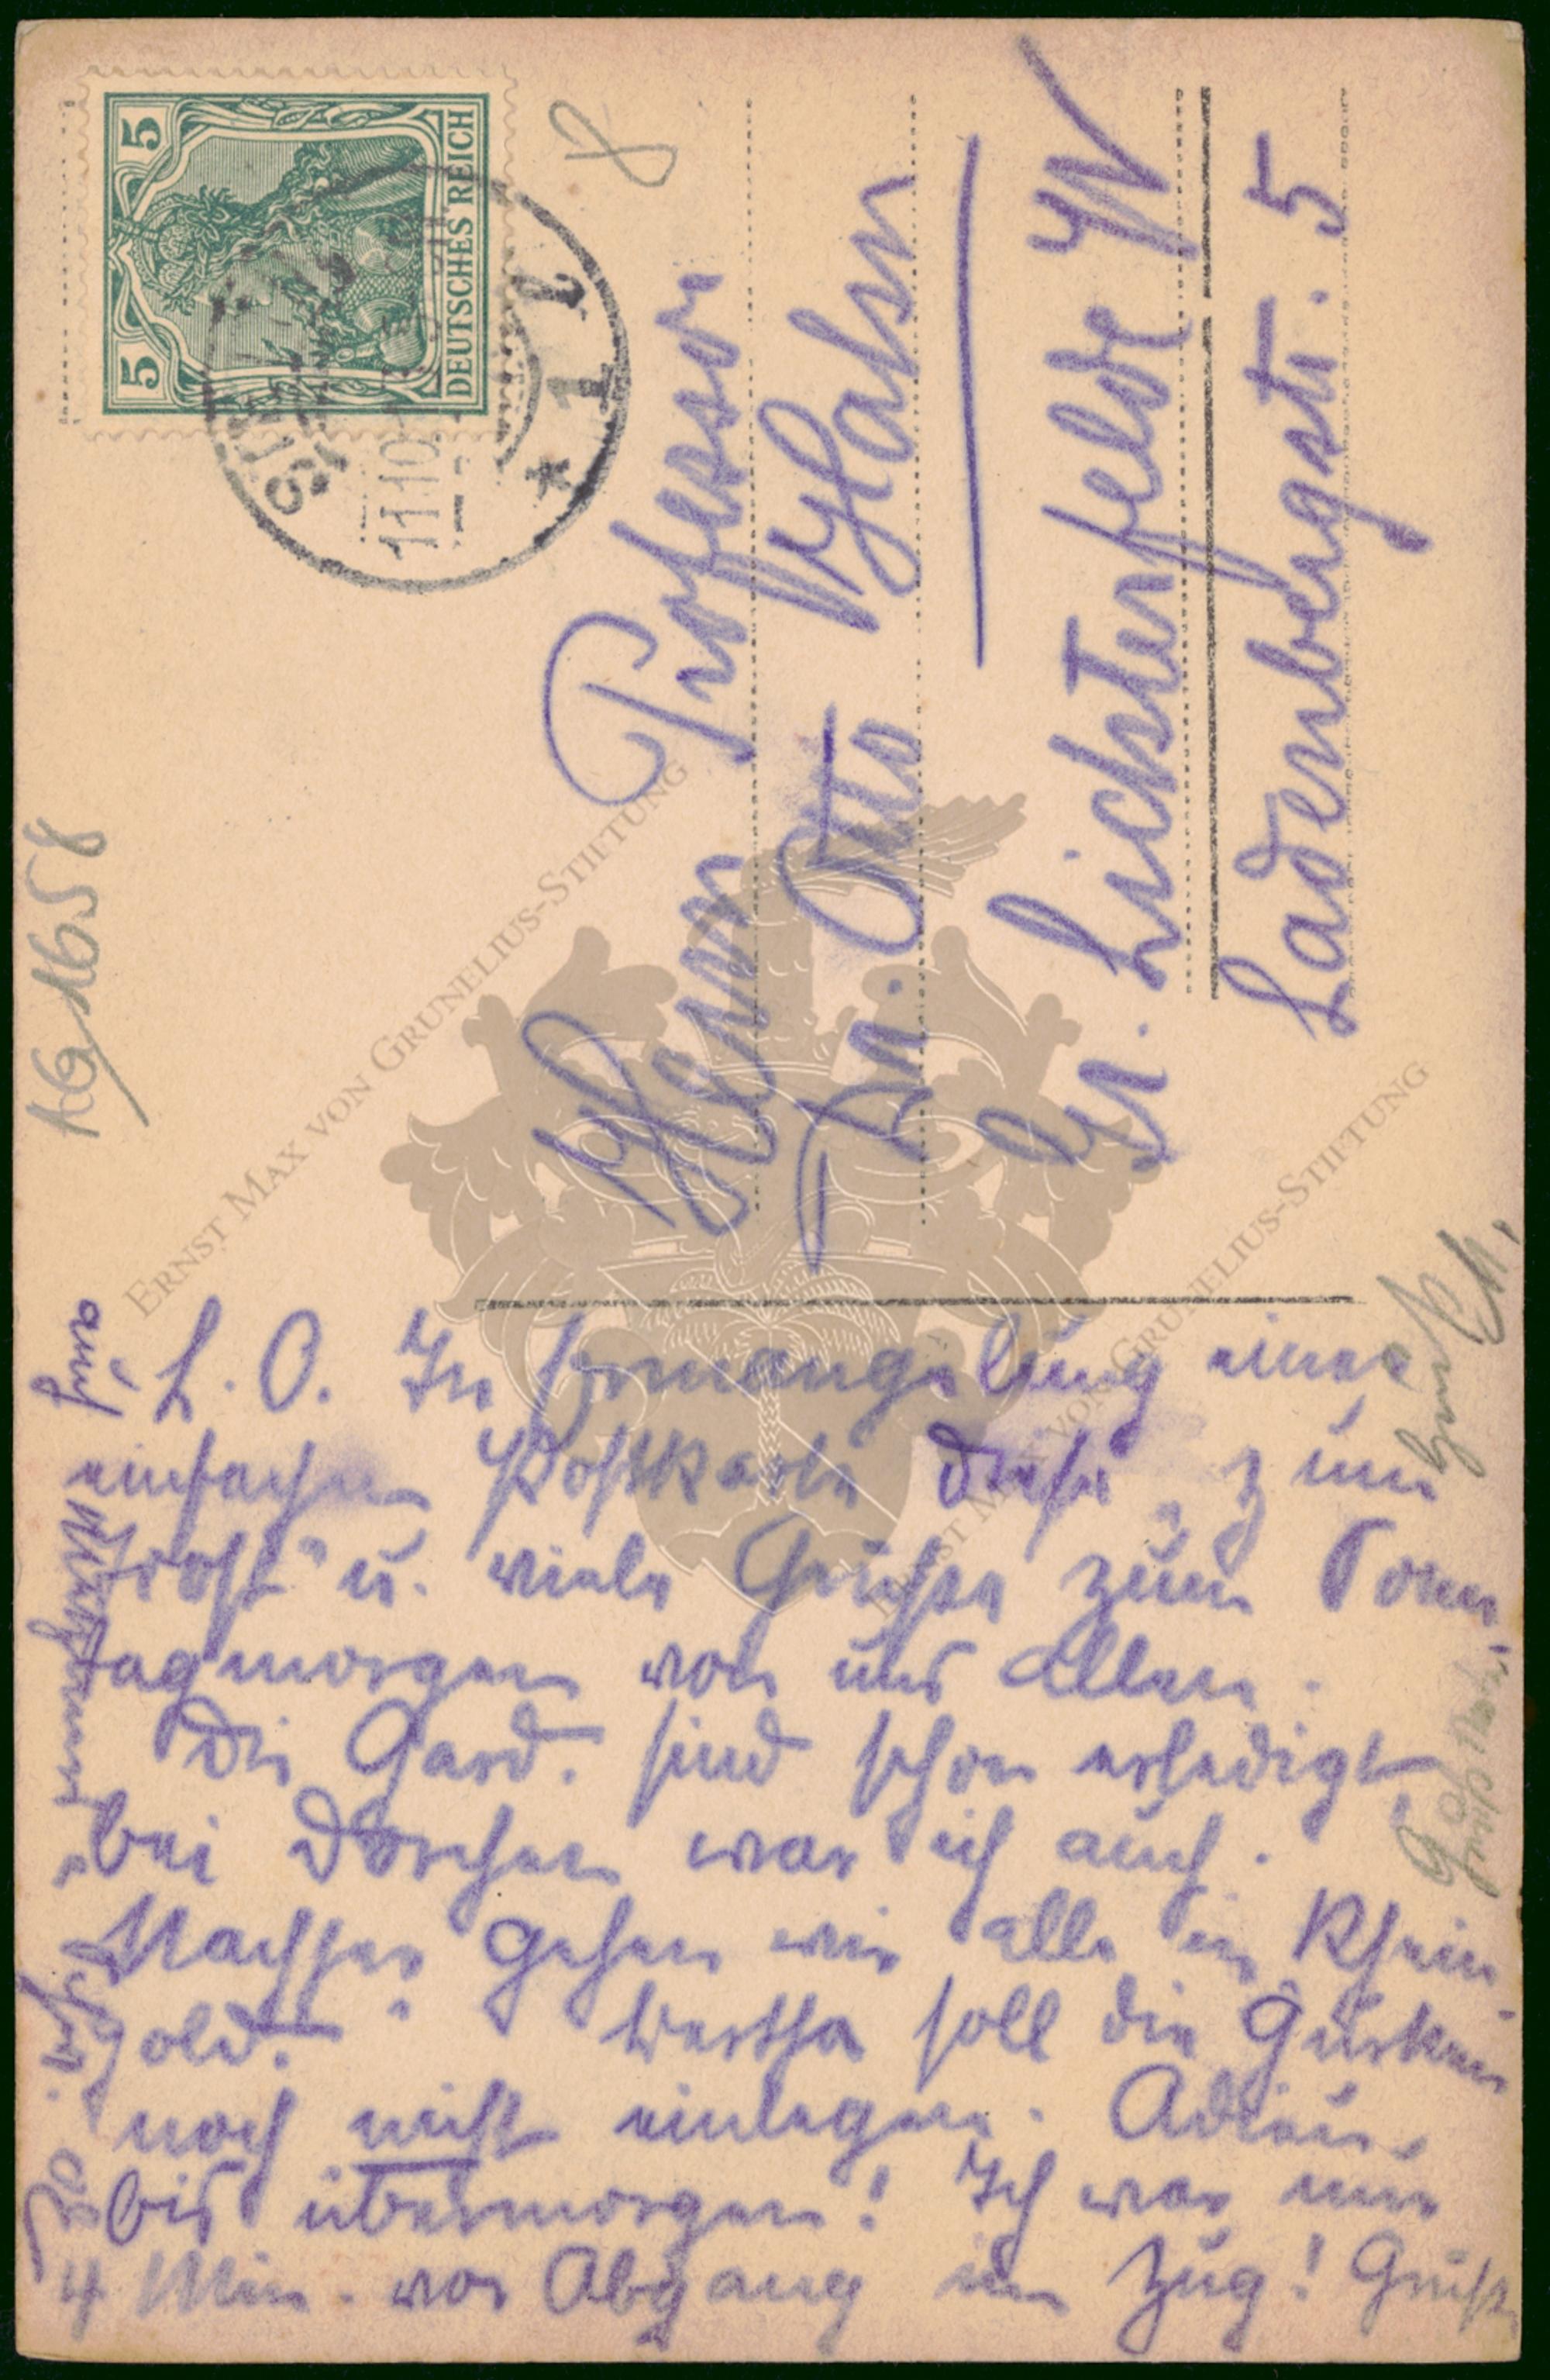 5 5
DEUTSCHES REICH
11.10.
* 1 l
8
AG 1658
Herrn Professor
Dr. Otto Hahn
Gr. Lichterfelde W
Ladenbergstr. 5
L. O. In Ermangelung einer
einfachen Postkarte diese "zum
Trost" u. viele Grüße zum Sonn-
tagmorgen von uns Allen.
Die Gard. sind schon erledigt,
bei Dorchen war ich auch.
Nachher gehen wir alle in Rhein-
gold. Bertha soll die Gurken
noch nicht einlegen. Adieu,
bis übermorgen! Ich war nur
4 Min. vor Abgang im Zug! Gruß
ERNST MAX VON GRUNELIUS-STIFTUNG
ERNST MAX VON GRUNELIUS-STIFTUNG